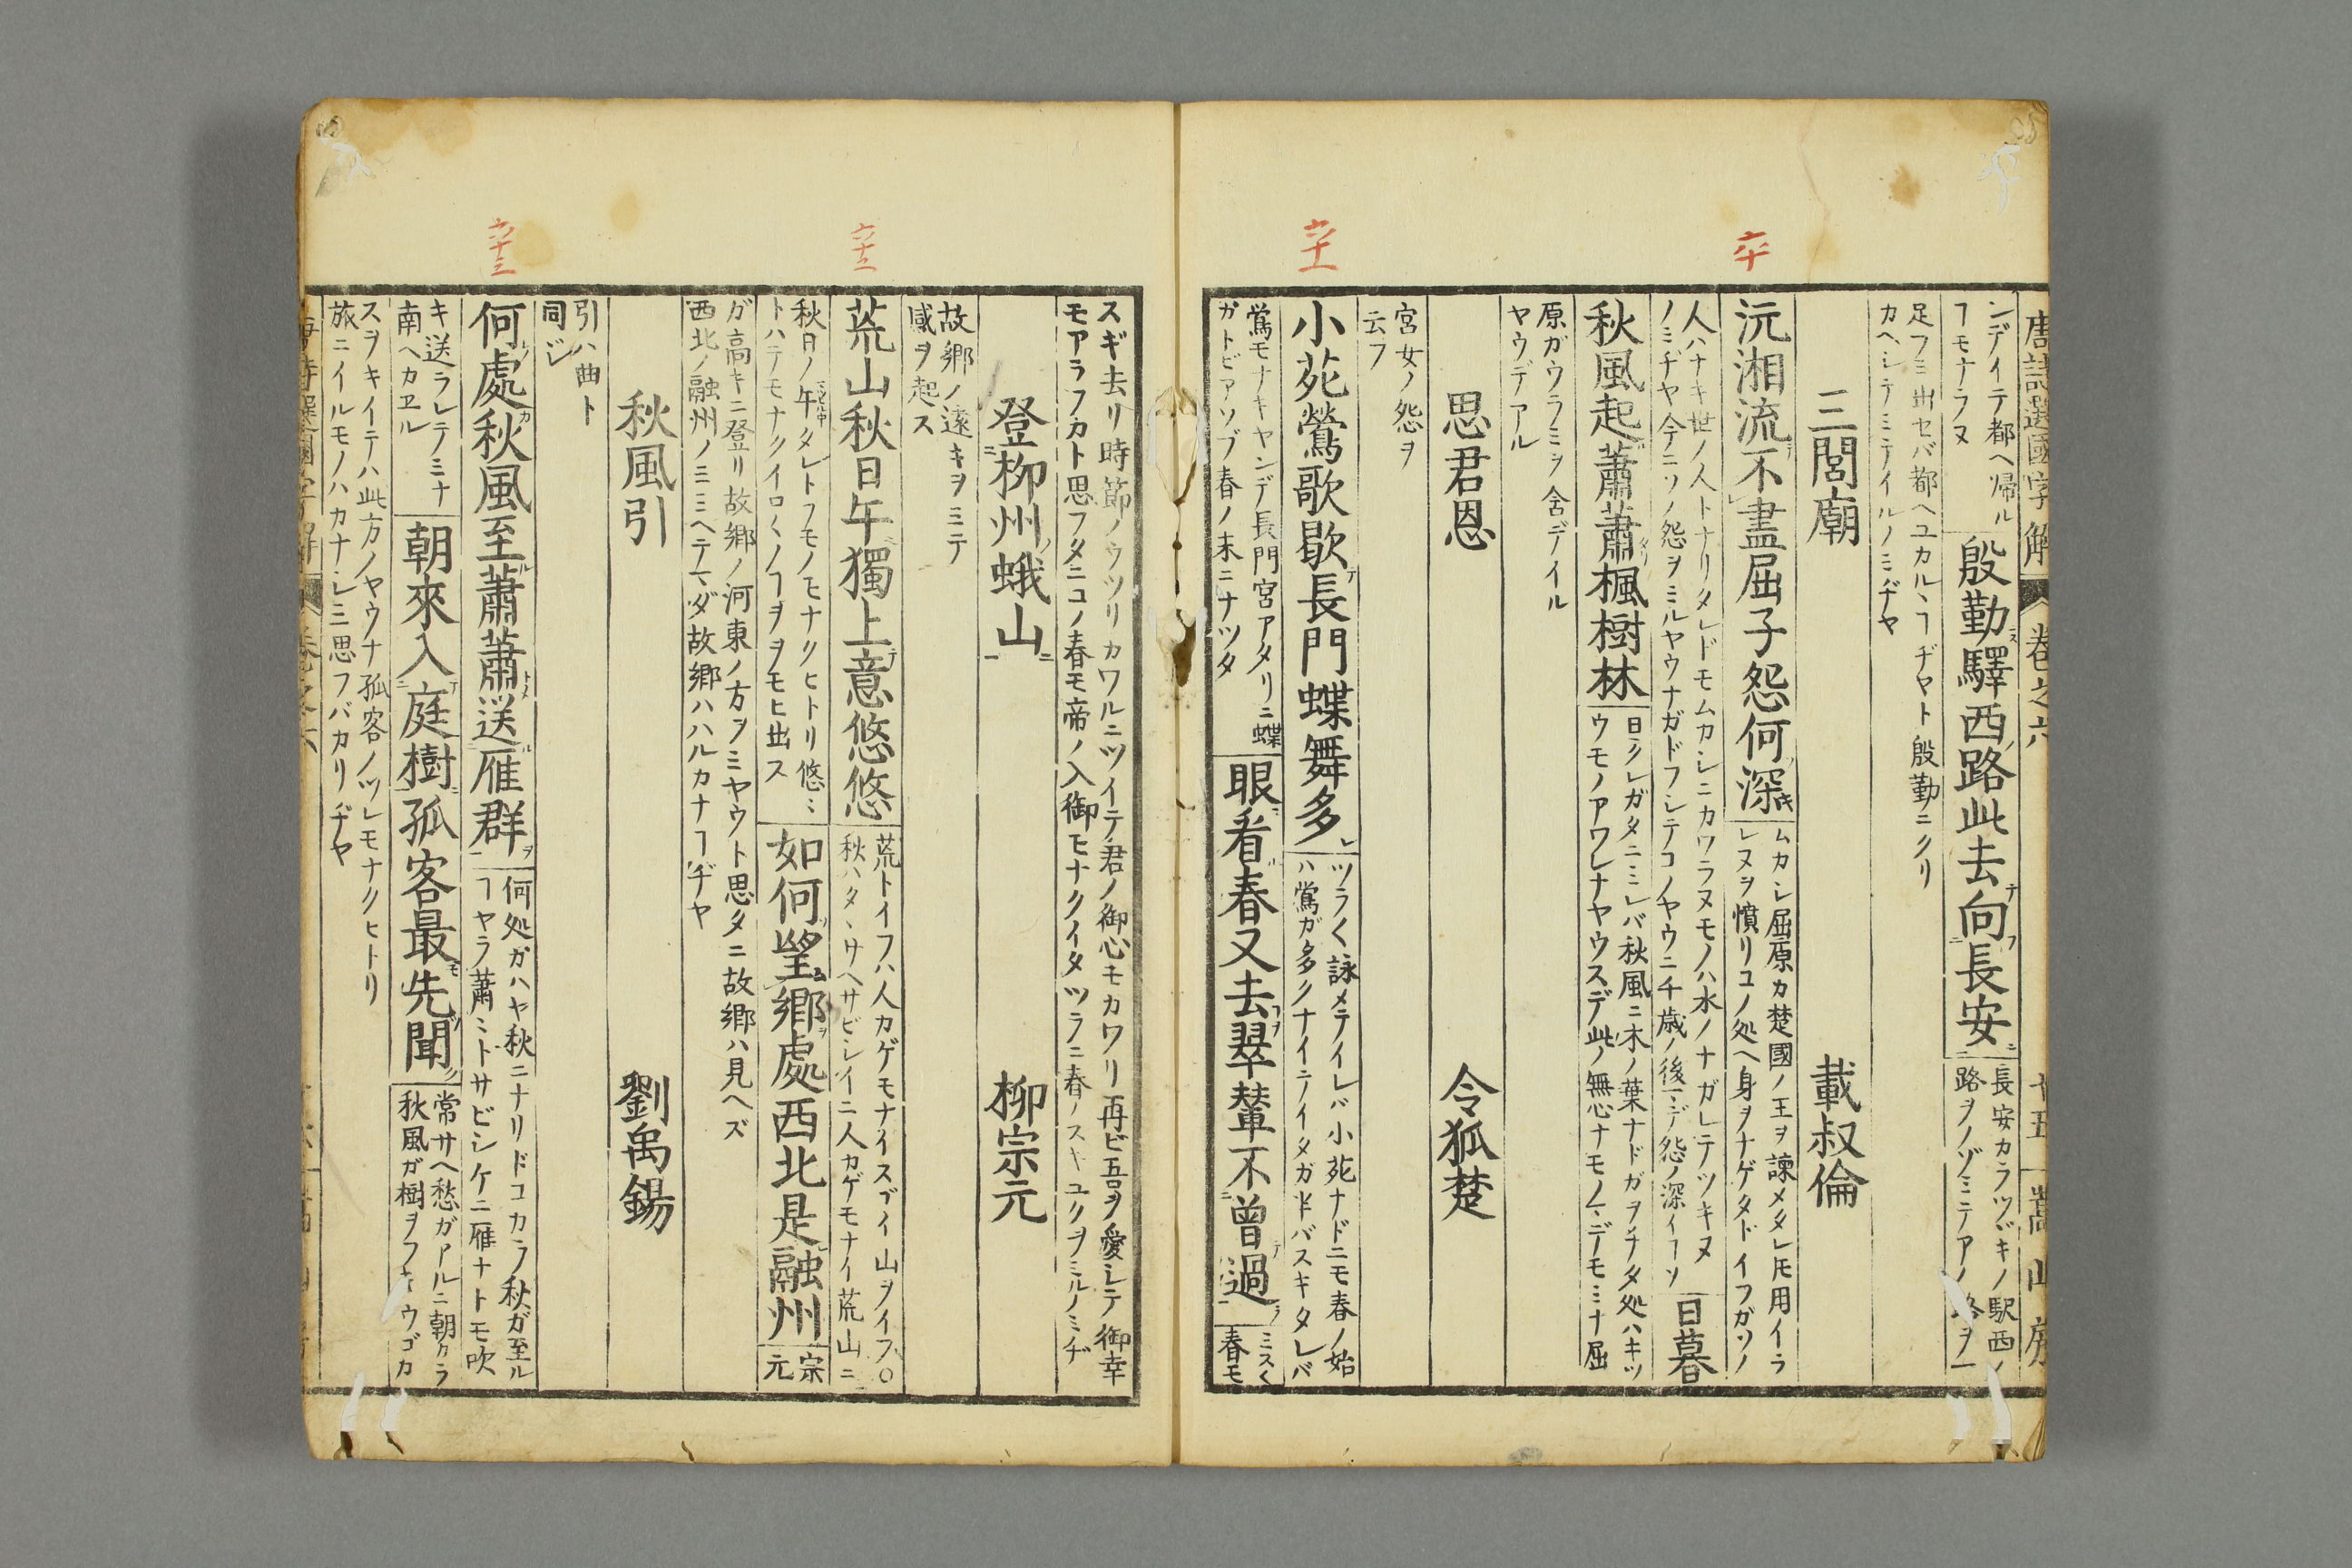 唐詩選國字解 巻之六 廿五 嵩山房
ンデイテ都ヘ帰ル
ヿモナラヌ
殷勤驛西路此去向長安
長安カラツヾキノ駅西ノ
路ヲノゾミテアノ路ヲ一
足フミ出セバ都ヘユカルヽヿヂヤト殷勤ニクリ
カヘシテミテイルノミヂヤ
三閭廟 載叔倫
沅湘流不盡屈子怨何深
ムカシ屈原カ楚國ノ王ヲ諫メタレ𪜈用イラ
レヌヲ憤リコノ処ヘ身ヲナゲタドイフガソノ
人ハナキ世ノ人トナリタレドモムカシニカワラヌモノハ水ノナガレテツキヌ
ノミヂヤ今ニソノ怨ヲミルヤウナガドフシテコノヤウニ千歳ノ後マデ怨ノ深イヿソ
日暮
秋風起蕭蕭楓樹林
日クレガタニミレバ秋風ニ木ノ葉ナドガヲチタ処ハキツ
ウモノアワレナヤウスデ此ノ無心ナモノマデモミナ屈
原ガウラミヲ含デイル
ヤウデアル
思君恩 令狐楚
宮女ノ怨ヲ
云フ
小苑鶯歌歇長門蝶舞多
ツラ〱詠メテイレバ小苑ナドニモ春ノ始
ハ鶯ガ多クナイテイタガ半バスキタレバ
鶯モナキヤンデ長門宮アタリニ蝶
ガトビアソブ春ノ末ニナツタ
眼看春又去翠輦不曾過
ミス〱
春モ
スギ去リ時節ノウツリカワルニツイテ君ノ御心モカワリ再ビ吾ヲ愛シテ御幸
モアラフカト思フタニコノ春モ帝ノ入御モナクイタツラニ春ノスキユクヲミルノミヂ
登柳州蛾山 柳宗元
故郷ノ遠キヲミテ
感ヲ起ス
荒山秋日午獨上意悠悠
荒トイフハ人カゲモナイスゴイ山ヲイフ○
秋ハタヽサヘサビシイニ人カゲモナイ荒山ニ
秋日ノ午タレトフモノモナクヒトリ悠ミ
トハテモナクイロ〱ノヿヲヲモヒ出ス
如何望郷處西北是融州
宗
元
ガ高キニ登リ故郷ノ河東ノ方ヲミヤウト思タニ故郷ハ見ヘズ
西北ノ融州ノミミヘテマダ故郷ハハルカナヿヂヤ
秋風引 劉禹錫
引ハ曲ト
同ジ
何處秋風至蕭蕭送雁群
何処ガハヤ秋ニナリドコカラ秋ガ至ル
ヿヤラ蕭ミトサビシケニ雁ナトモ吹
キ送ラレテミナ
南ヘカヱル
朝來入庭樹孤客最先聞
常サヘ愁ガアルニ朝カラ
秋風ガ樹ヲフキウゴカ
スヲキイテハ此方ノヤウナ孤客ノツレモナクヒトリ
旅ニイルモノハカナシミ思フバカリヂヤ